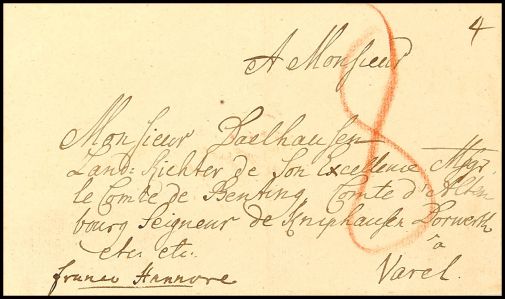 4
A Monsieur
8
Monsieur Daelhausen
Land: Richter de Son Excellence Msgr.
le Comte de Benting, Comte d'Alten
bourg Seigneur de Kniphausen Dorwerth
etc: etc.
à
franco Hannovre
Varel.